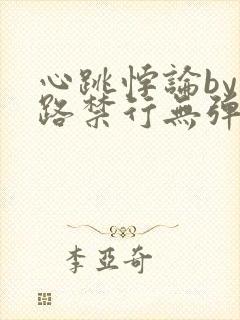 心跳悖論by
路禁行無彈
李亞奇